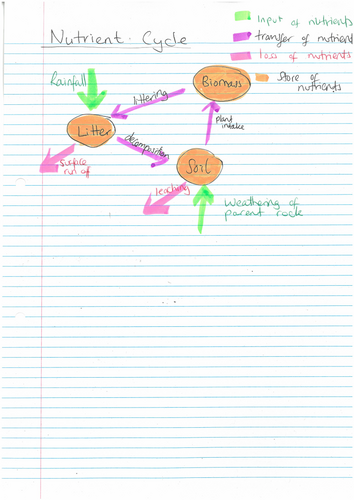 Input of nutrients
Nutrient Cycle
transfer of nutrients
loss of nutrients
Rainfall
Biomass
Store of
nutrients
littering
Litter
plant
intake
decomposition
Surface
run off
Soil
leaching
Weathering of
parent rock